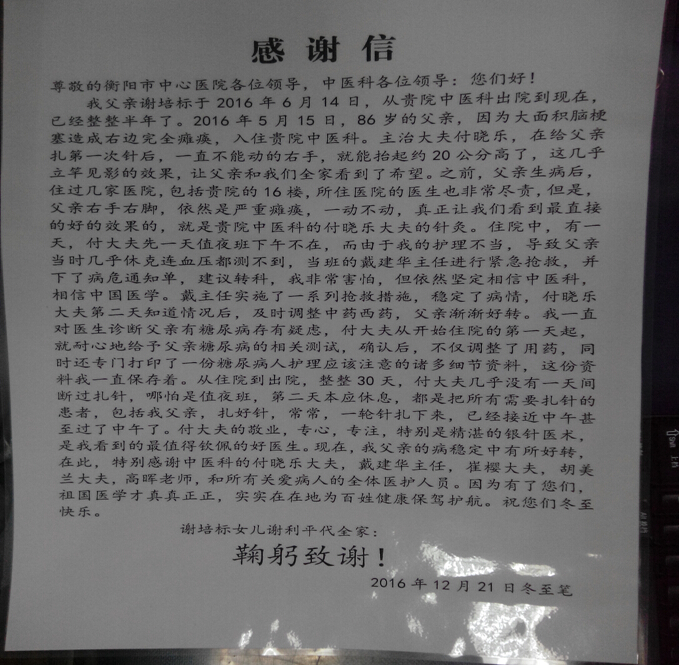 感谢信
尊敬的衡阳市中心医院各位领导，中医科各位领导：您们好！
我父亲谢培标于2016年6月14日，从贵院中医科出院到现在，
已经整整半年了。2016年5月15日，86岁的父亲，因为大面积脑梗
塞造成右边完全瘫痪，入住贵院中医科。主治大夫付晓乐，在给父亲
扎第一次针后，一直不能动的右手，就能抬起约20公分高了，这几乎
立竿见影的效果，让父亲和我们全家看到了希望。之前，父亲生病后，
住过几家医院，包括贵院的16楼，所住医院的医生也非常尽责，但是，
父亲右手右脚，依然是严重瘫痪，一动不动，真正让我们看到最直接
的好的效果的，就是贵院中医科的付晓乐大夫的针灸。住院中，有一
天，付大夫先一天值夜班下午不在，而由于我的护理不当，导致父亲
当时几乎休克连血压都测不到，当班的戴建华主任进行紧急抢救，并
下了病危通知单，建议转科，我非常害怕，但依然坚定相信中医科，
相信中国医学。戴主任实施了一系列抢救措施，稳定了病情，付晓乐
大夫第二天知道情况后，及时调整中药西药，父亲渐渐好转。我一直
对医生诊断父亲有糖尿病存有疑虑，付大夫从开始住院的第一天起，
就耐心地给予父亲糖尿病的相关测试，确认后，不仅调整了用药，同
时还专门打印了一份糖尿病人护理应该注意的诸多细节资料，这份资
料我一直保存着。从住院到出院，整整30天，付大夫几乎没有一天间
断过扎针，哪怕是值夜班，第二天本应休息，都是把所有需要扎针的
患者，包括我父亲，扎好针，常常，一轮针扎下来，已经接近中午甚
至过了中午了。付大夫的敬业，专心，专注，特别是精湛的银针医术，
是我看到的最值得钦佩的好医生。现在，我父亲的病稳定中有所好转，
在此，特别感谢中医科的付晓乐大夫，戴建华主任，崔樱大夫，胡美
兰大夫，高晖老师，和所有关爱病人的全体医护人员。因为有了您们，
祖国医学才真真正正，实实在在地为百姓健康保驾护航。祝您们冬至
快乐。
谢培标女儿谢利平代全家：
鞠躬致谢！
2016年12月21日冬至笔